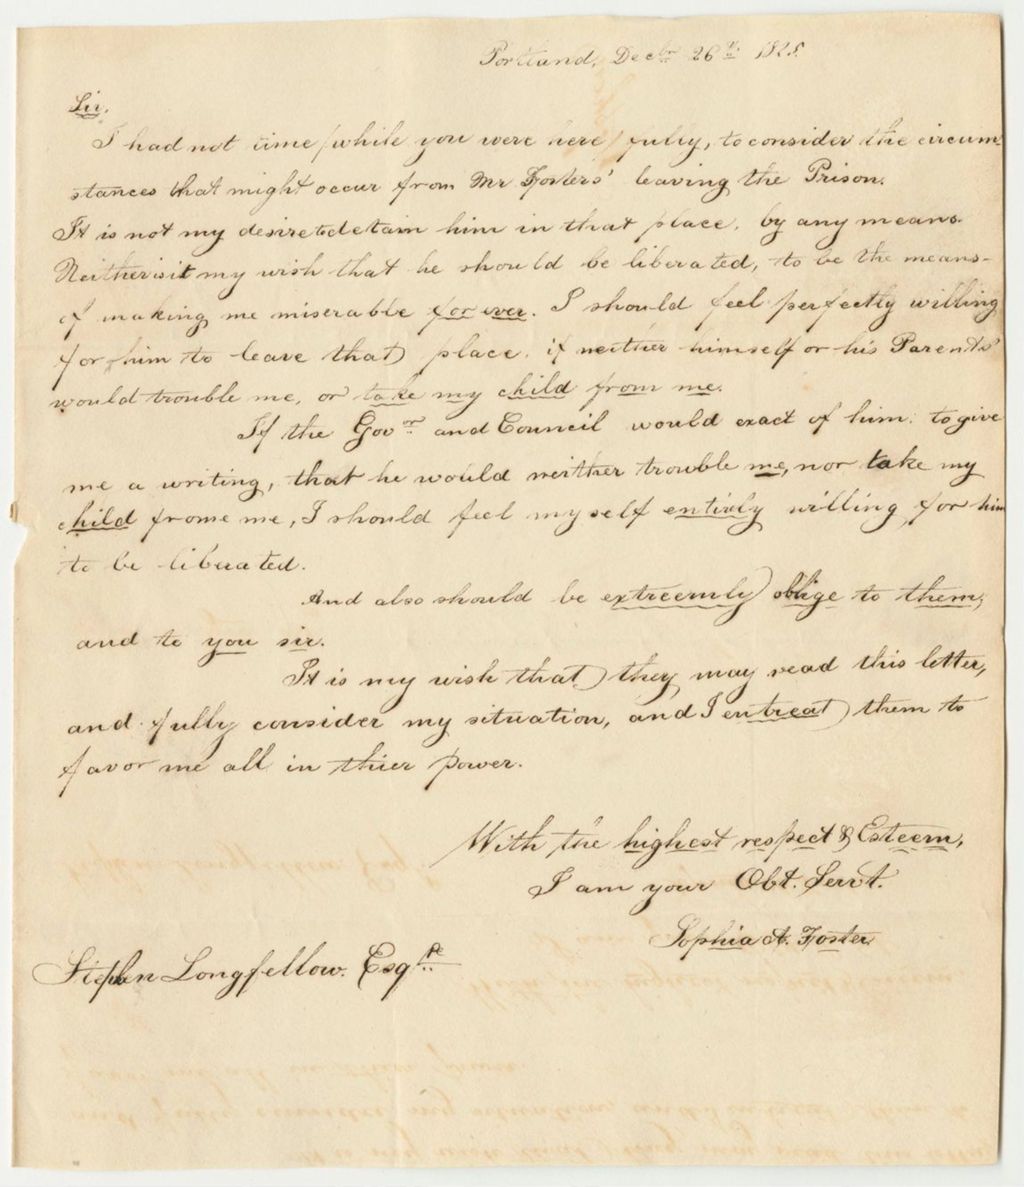 Portland, Decbr 26th 1825
Sir,
I had not time (while you were here) fully, to consider the circum
stances that might occur from Mr Fosters' leaving the Prison.
It is not my desire to detain him in that place, by any means.
Neither is it my wish that he should be liberated, to be the means
of making me miserable for ever. I should feel perfectly willing
for him to leave that place, if neither himself or his Parents
would trouble me, or take my child from me.
If the Govor and Council would exact of him: to give
me a writing, that he would neither trouble me, nor take my
child frome me, I should feel myself entirely willing for him
to be liberated.
And also should be extreemly oblige to them,
and to you sir.
It is my wish that they may read this letter,
and fully consider my situation, and I entreat them to
favor me all in thier power.
With the highest respect & Esteem,
I am your Obt. Servt.
Sophia A. Foster
Stephen Longfellow. Esqre